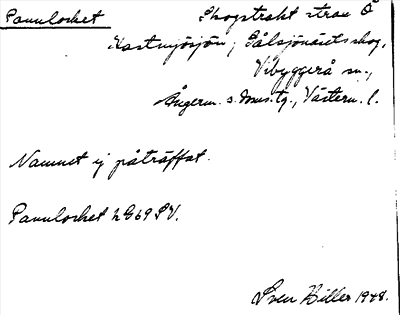 Pannlocket Skogstrakt strax Ö
Kastmyösjön, Gålsjönäsets skog,
Vibyggerå sn.,
Ångerm. s. dms. tg., Västern. l.
Namnet ej påträffat.
Pannlocket h G69 SV.
Sven Hiller 1948.